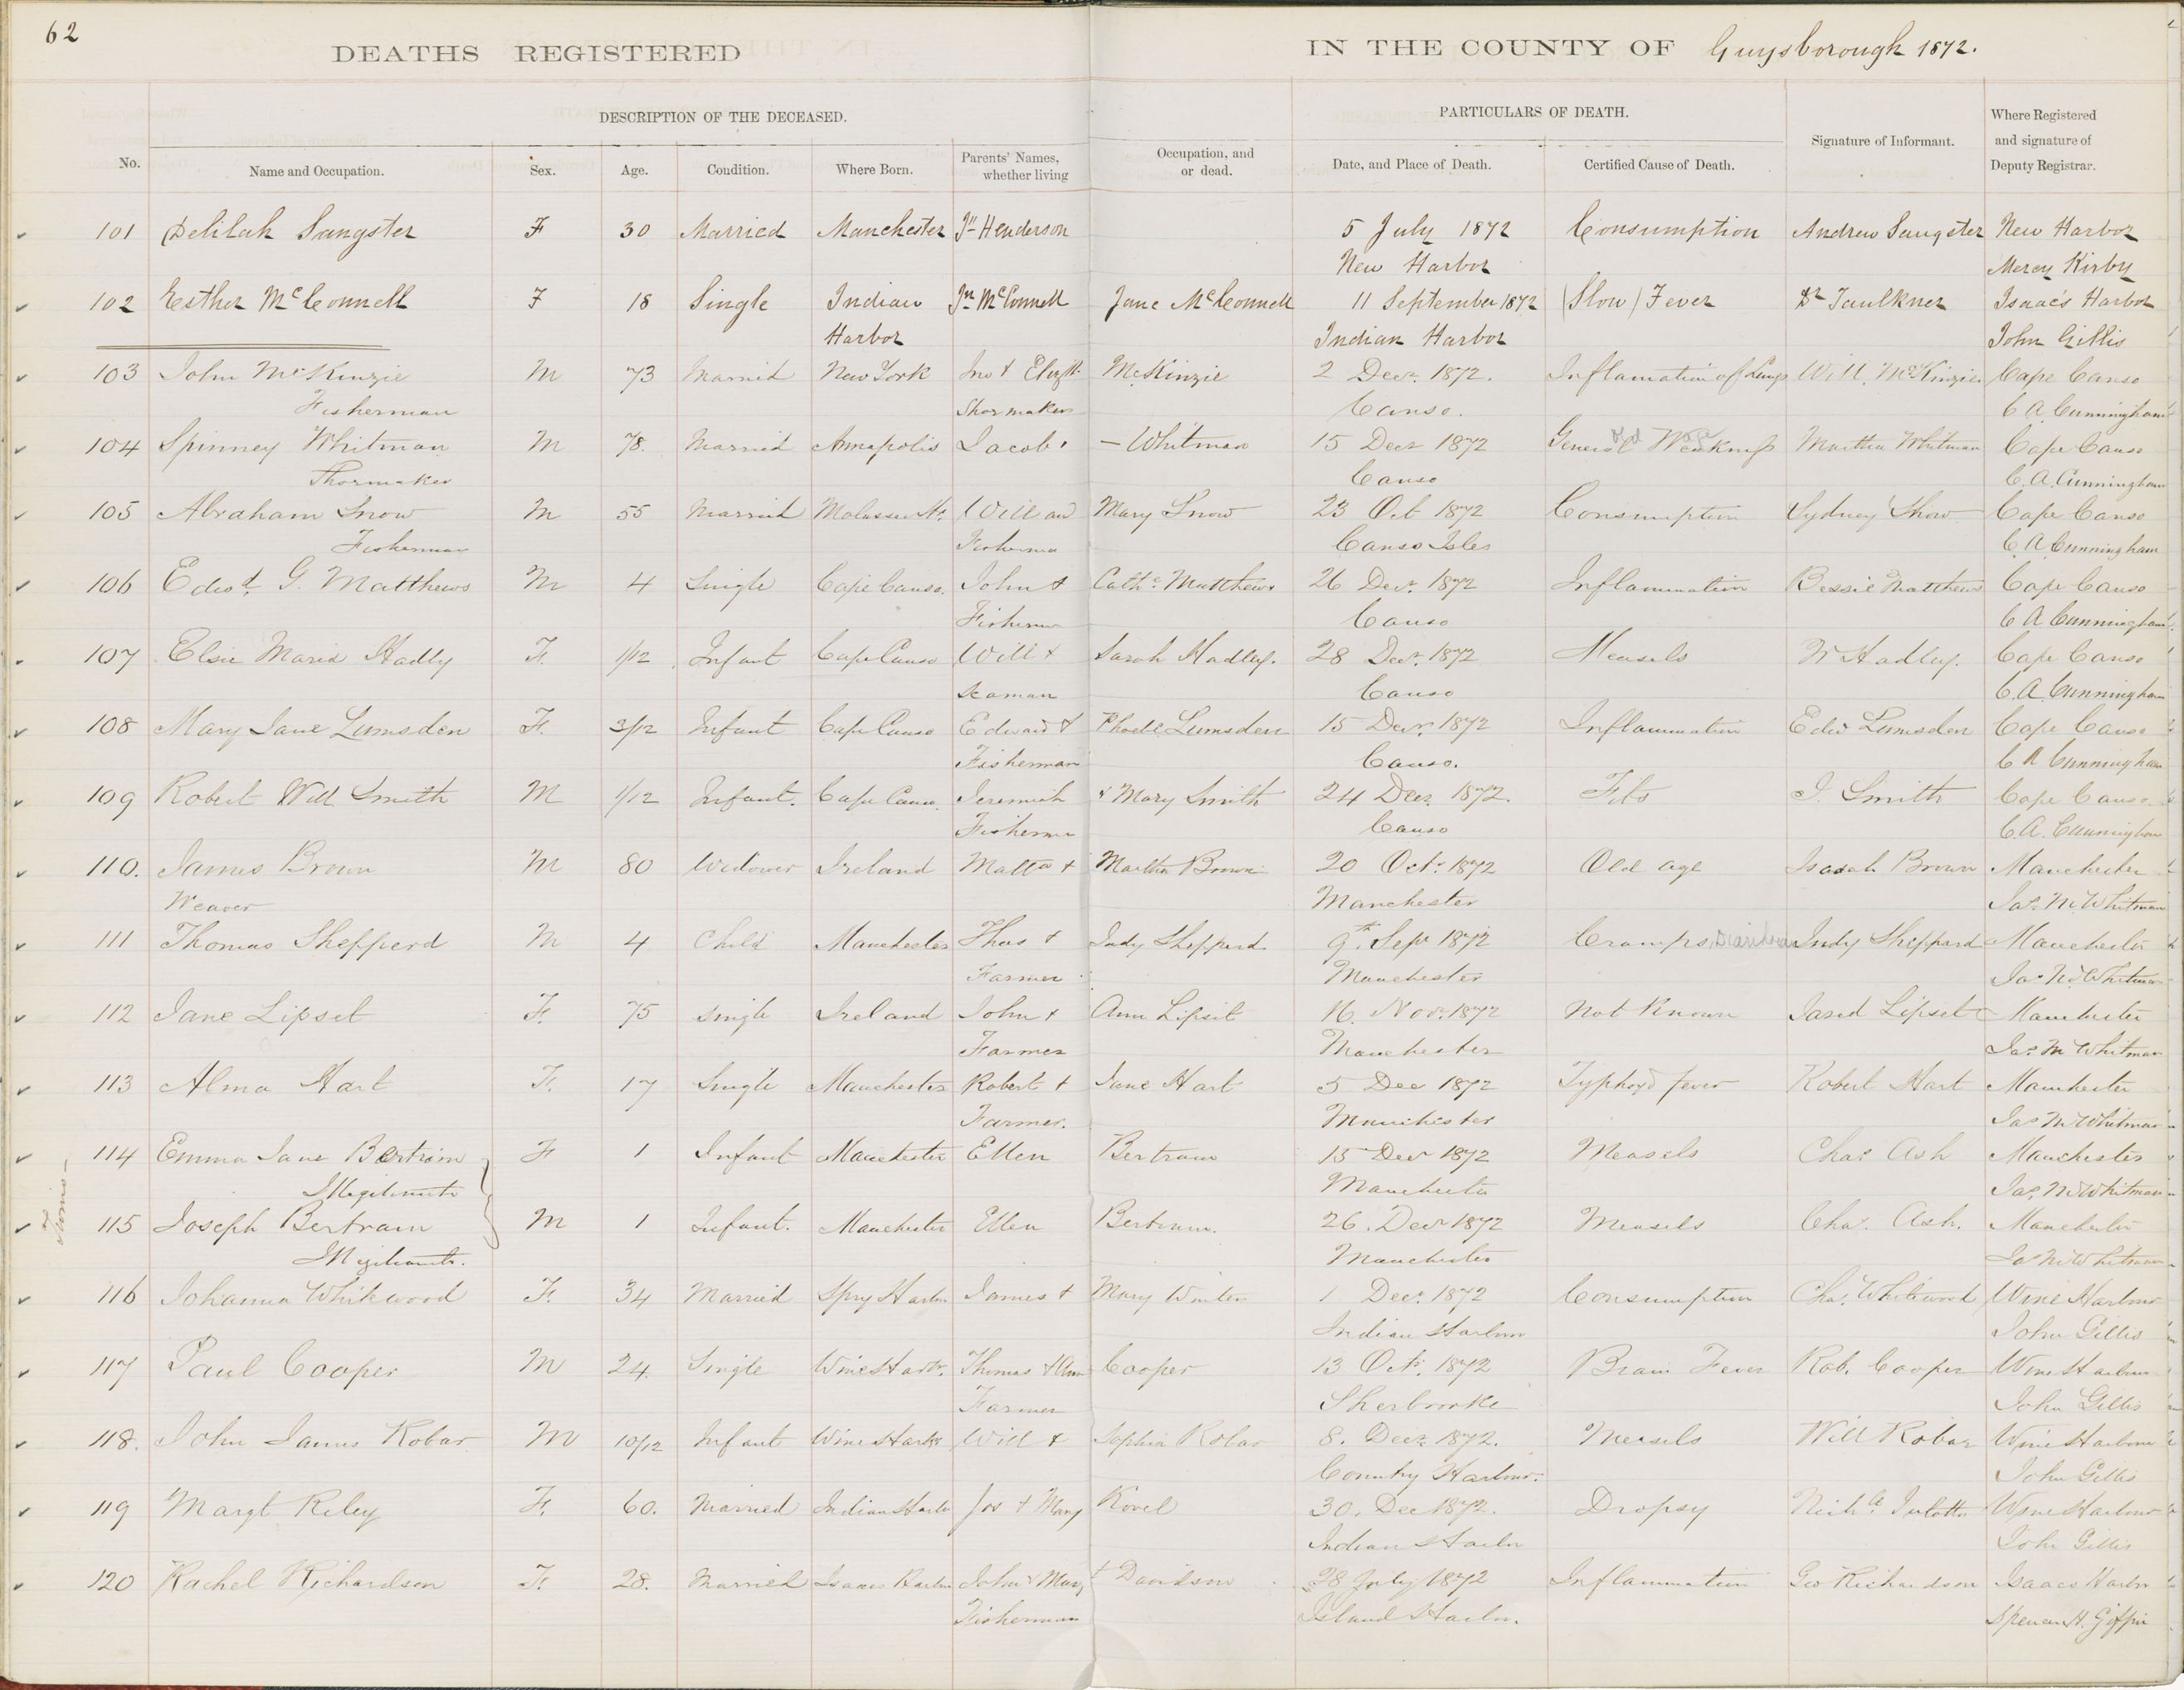 62
DEATHS REGISTERED IN THE COUNTY OF Guysborough 1872.
DESCRIPTION OF THE DECEASED. PARTICULARS OF DEATH.
No. Name and Occupation. Sex. Age. Condition. Where Born. Parents' Names, whether living Occupation, and or dead. Date, and Place of Death. Certified Cause of Death. Signature of Informant. Where Registered and signature of Deputy Registrar.
101 Delilah Sangster F 30 Married Manchester Jn Henderson 5 July 1872 Consumption Andrew Sangster New Harbor
New Harbor Mercy Kirby
102 Esther McConnell F 18 Single Indian Jn McConnell Jane McConnell 11 September 1872 (Slow) Fever Dr Faulkner Isaac's Harbor
Harbor Indian Harbor John Gillis
103 John McKinzie M 73 Married New York Jno & Elizth McKinzie 2 Decr. 1872. Inflamation of Lungs Will. McKinzie Cape Canso
Fisherman Shormaker Canso. C A Cunningham
104 Spinney Whitman M 78. Married Annapolis Jacob - Whitman 15 Decr 1872 General Weakness Martha Whitman Cape Canso
Shormaker Canso C. A. Cunningham
105 Abraham Snow M 55 Married Will and Mary Snow 23 Oct 1872 Consumption Sydney Snow Cape Canso
Fisherman Canso Isles C. A. Cunningham
106 Edwd. G. Matthews M 4 Single Cape Canso. John & Cathe. Matthews 26 Decr. 1872 Inflammation Bessie Matthews Cape Canso
Canso C A Cunningham
107 Elsie Maria Hadly F. 1/12 Infant Cape Canso Will & Sarah Hadley. 28 Decr. 1872 Measels W Hadley. Cape Canso
Seaman Canso C. A. Cunningham
108 Mary Jane Lumsden F. 3/12 Infant Cape Canso Edward & Phoebe Lumsden 15 Decr. 1872 Inflammation Edwd Lumsden Cape Canso
Fisherman Canso. C A Cunningham
109 Robert Will Smith M 1/12 Infant. Cape Canso Jeremiah & Mary Smith 24 Decr. 1872. Fits J. Smith Cape Canso
Canso C. A. Cunningham
110. James Brown M 80 Widower Ireland & Martha Brown 20 Oct. 1872 Old age Brown Manchester
Weaver Manchester Jas. M Whitman
111 Thomas Shepperd M 4 Child Manchester Thos & Judy Sheppard 9th. Sepr 1872 Cramps, Diarrhoea Judy Sheppard Manchester
Farmer Manchester Jas. M Whitman
112 Jane Lipset F. 75 Single Ireland John & Ann Lipset 16. Nov. 1872 Not Known Jared Lipset Manchester
Farmer Manchester Jas. M Whitman
113 Alma Hart F. 17 Single Manchester Robert & Jane Hart 5 Dec 1872 Typhoyd fever Robert Hart Manchester
Farmer. Manchester Jas M Whitman
114 Emma Jane Bertram F 1 Infant Manchester Ellen Bertram 15 Decr 1872 Measels Chas Ash Manchester
Illegitimate Manchester Jas. M Whitman
Twins
115 Joseph Bertram M 1 Infant. Manchester Ellen Bertram. 26. Decr 1872 Measels Chas. Ash. Manchester
Illegitimate. Manchester Jas M Whitman
116 Johanna Whitewood F. 34 Married Spry Harbr James & Mary Winter 1 Decr. 1872 Consumption Chas. Whitewood Wine Harbour
Indian Harbour John Gillis
117 Paul Cooper M 24. Single Wine Harbr. Thomas & Ann Cooper 13 Oct. 1872 Brain Fever Rob. Cooper Wine Harbour
Farmer Sherbrooke John Gillis
118. John James Robar M 10/12 Infant Wine Harbr Will & Sophia Robar 8. Decr. 1872. Measels Will Robar Wine Harbour
Country Harbour. John Gillis
119 Margt Riley F. 60. Married Indian Harbr Jos & Mary 30. Dec 1872. Dropsy Wine Harbour
Indian Harbr John Gillis
120 Rachel Richardson F. 28. Married Isaacs Harbr John & Mary Davidson 28 July 1872 Inflammation Geo Richardson Isaacs Harbr
Fisherman Island Harbr. Spencer H. Giffin